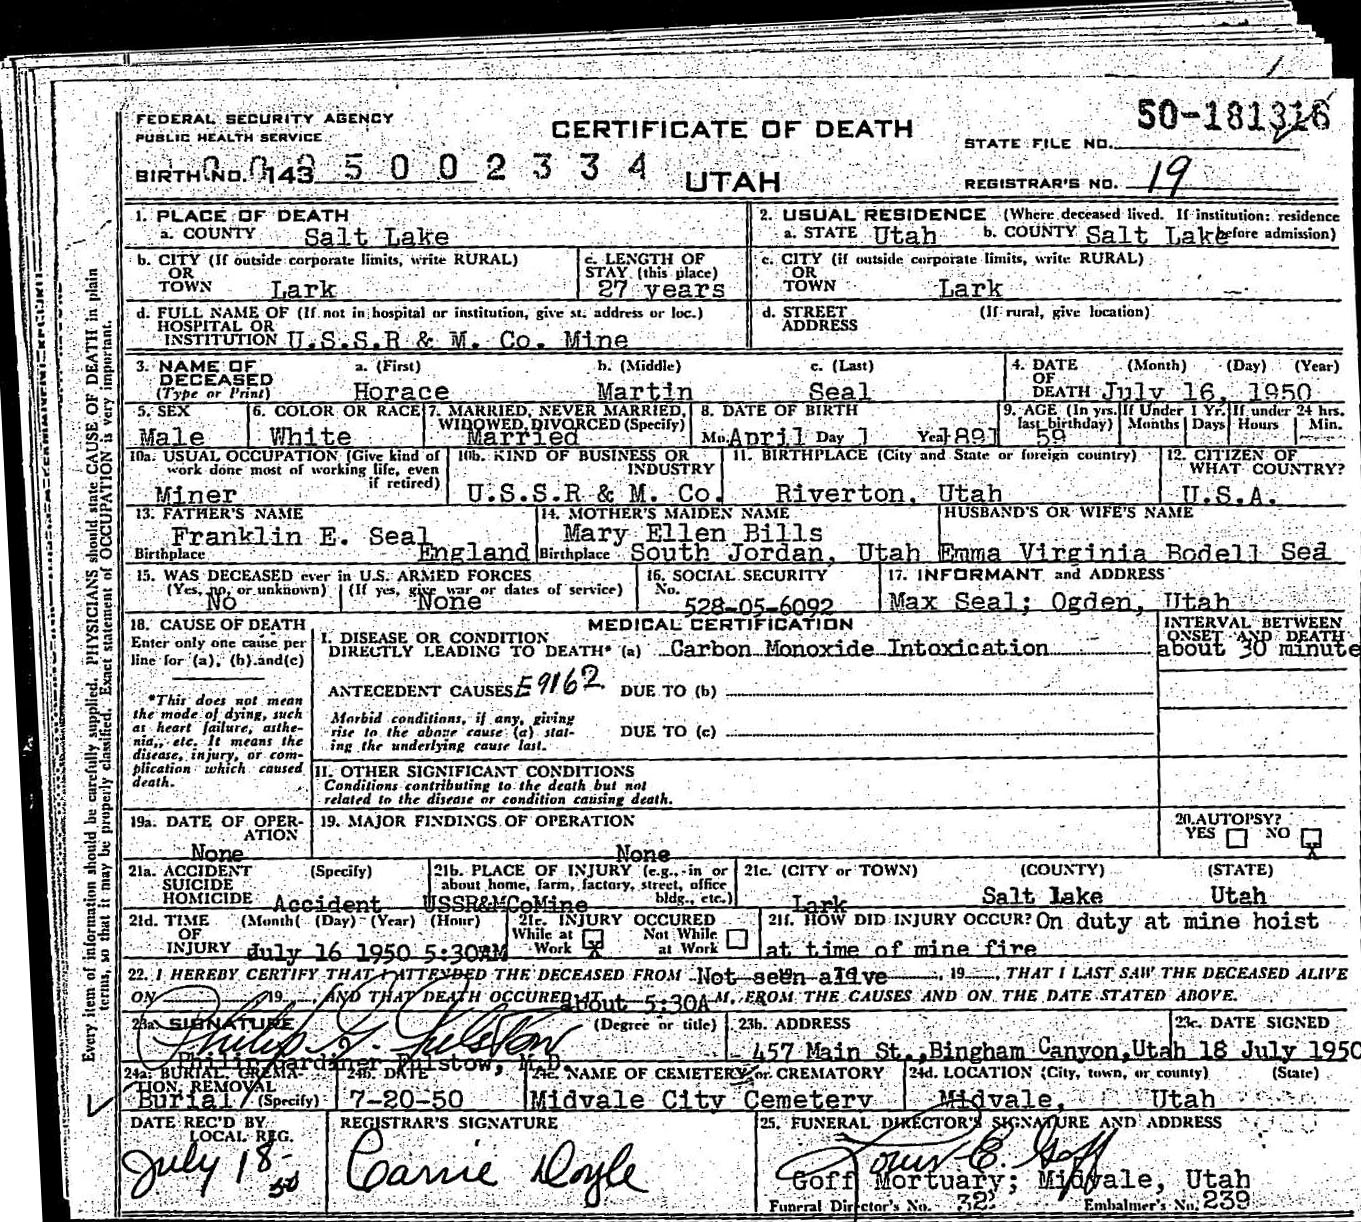 FEDERAL SECURITY AGENCY
PUBLIC HEALTH SERVICE
CERTIFICATE OF DEATH
50-181316
STATE FILE NO.
BIRTH NO. 143 5 0 0 2 3 3 4
UTAH
REGISTRAR'S NO. 19
1. PLACE OF DEATH
a. COUNTY Salt Lake
2. USUAL RESIDENCE (Where deceased lived. If institution: residence before admission)
a. STATE Utah b. COUNTY Salt Lake
b. CITY (If outside corporate limits, write RURAL)
OR
TOWN Lark
c. LENGTH OF
STAY (this place)
27 years
c. CITY (if outside corporate limits, write RURAL)
OR
TOWN Lark
d. FULL NAME OF (If not in hospital or institution, give st. address or loc.)
HOSPITAL OR
INSTITUTION U.S.S.R & M. Co. Mine
d. STREET (If rural, give location)
ADDRESS
3. NAME OF
DECEASED
(Type or Print)
a. (First) b. (Middle) c. (Last)
Horace Martin Seal
4. DATE (Month) (Day) (Year)
OF
DEATH July 16, 1950
5. SEX
Male
6. COLOR OR RACE
White
7. MARRIED, NEVER MARRIED,
WIDOWED, DIVORCED (Specify)
Married
8. DATE OF BIRTH
Mo. April Day 1 Year 1891
9. AGE (In yrs. last birthday)
59
If Under 1 Yr.
Months Days
If under 24 hrs.
Hours Min.
10a. USUAL OCCUPATION (Give kind of
work done most of working life, even
if retired)
Miner
10b. KIND OF BUSINESS OR
INDUSTRY
U.S.S.R & M. Co.
11. BIRTHPLACE (City and State or foreign country)
Riverton, Utah
12. CITIZEN OF
WHAT COUNTRY?
U.S.A.
13. FATHER'S NAME
Franklin E. Seal
Birthplace England
14. MOTHER'S MAIDEN NAME
Mary Ellen Bills
Birthplace South Jordan, Utah
HUSBAND'S OR WIFE'S NAME
Emma Virginia Bodell Sea
15. WAS DECEASED ever in U.S. ARMED FORCES
(Yes, no, or unknown) (If yes, give war or dates of service)
No None
16. SOCIAL SECURITY
No.
528-05-6092
17. INFORMANT and ADDRESS
Max Seal; Ogden, Utah
18. CAUSE OF DEATH
Enter only one cause per
line for (a), (b) and (c)
*This does not mean
the mode of dying, such
as heart failure, asthe-
nia, etc. It means the
disease, injury, or com-
plication which caused
death.
MEDICAL CERTIFICATION
I. DISEASE OR CONDITION
DIRECTLY LEADING TO DEATH* (a) Carbon Monoxide Intoxication
INTERVAL BETWEEN
ONSET AND DEATH
about 30 minute
ANTECEDENT CAUSES E9162 DUE TO (b)
Morbid conditions, if any, giving
rise to the above cause (a) stat-
ing the underlying cause last.
DUE TO (c)
II. OTHER SIGNIFICANT CONDITIONS
Conditions contributing to the death but not
related to the disease or condition causing death.
19a. DATE OF OPER-
ATION
None
19. MAJOR FINDINGS OF OPERATION
None
20. AUTOPSY?
YES NO X
21a. ACCIDENT (Specify)
SUICIDE
HOMICIDE Accident
21b. PLACE OF INJURY (e.g., in or
about home, farm, factory, street, office
bldg., etc.)
USSR&MCoMine
21c. (CITY or TOWN) (COUNTY) (STATE)
Lark Salt Lake Utah
21d. TIME (Month) (Day) (Year) (Hour)
OF
INJURY July 16 1950 5:30AM
21e. INJURY OCCURED
While at Work X Not While at Work
21f. HOW DID INJURY OCCUR? On duty at mine hoist
at time of mine fire
22. I HEREBY CERTIFY THAT I ATTENDED THE DECEASED FROM Not seen alive, 19 , THAT I LAST SAW THE DECEASED ALIVE
ON 19 , AND THAT DEATH OCCURED AT about 5:30A M. FROM THE CAUSES AND ON THE DATE STATED ABOVE.
23a. SIGNATURE (Degree or title)
Philip Gardiner M.D.
23b. ADDRESS
457 Main St., Bingham Canyon, Utah
23c. DATE SIGNED
18 July 1950
24a. BURIAL, CREMA-
TION, REMOVAL
Burial (Specify)
24b. DATE
7-20-50
24c. NAME OF CEMETERY or CREMATORY
Midvale City Cemetery
24d. LOCATION (City, town, or county) (State)
Midvale, Utah
DATE REC'D BY
LOCAL REG.
July 18-50
REGISTRAR'S SIGNATURE
Carrie Doyle
25. FUNERAL DIRECTOR'S SIGNATURE AND ADDRESS
Louis C. Goff
Goff Mortuary; Midvale, Utah
Funeral Director's No. 32 Embalmer's No. 239
Every item of information should be carefully supplied. PHYSICIANS should state CAUSE OF DEATH in plain
terms, so that it may be properly classified. Exact statement of OCCUPATION is very important.